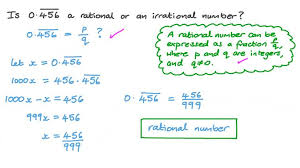 Is 0.4̅5̅6̅ a rational or an irrational number?
0.4̅5̅6̅ = p/q ?
A rational number can be
expressed as a fraction p/q,
where p and q are integers,
and q≠0.
let x = 0.4̅5̅6̅
1000x = 456.4̅5̅6̅
1000x - x = 456
999x = 456
x = 456/999
0.4̅5̅6̅ = 456/999
rational number